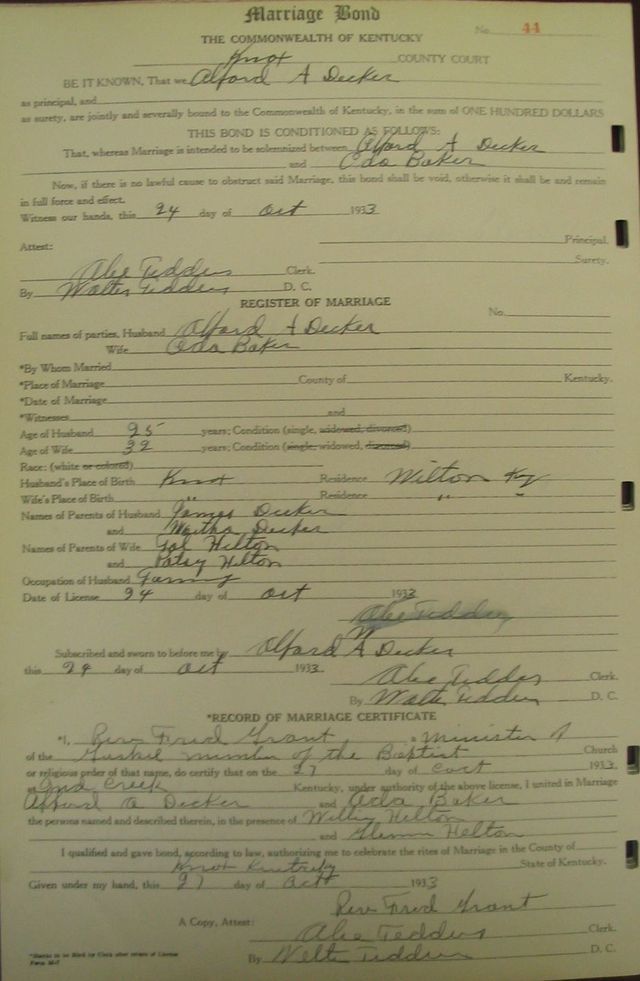 Marriage Bond
No. 44
THE COMMONWEALTH OF KENTUCKY
Knox COUNTY COURT
BE IT KNOWN, That we Alford A Decker
as principal, and
as surety, are jointly and severally bound to the Commonwealth of Kentucky, in the sum of ONE HUNDRED DOLLARS
THIS BOND IS CONDITIONED AS FOLLOWS:
That, whereas Marriage is intended to be solemnized between Alford A Decker
and Oda Baker
Now, if there is no lawful cause to obstruct said Marriage, this bond shall be void, otherwise it shall be and remain
in full force and effect.
Witness our hands, this 24 day of Oct 1933
Principal.
Attest:
Surety.
Abe Tedders Clerk.
By Walter Tedders D. C.
REGISTER OF MARRIAGE
No.
Full names of parties, Husband Alford A Decker
Wife Oda Baker
*By Whom Married
*Place of Marriage County of Kentucky.
*Date of Marriage
*Witnesses and
Age of Husband 25 years; Condition (single, widowed, divorced)
Age of Wife 32 years; Condition (single, widowed, divorced)
Race: (white or colored)
Husband's Place of Birth Knox Residence Wilton Ky
Wife's Place of Birth " Residence " "
Names of Parents of Husband James Decker
and Martha Decker
Names of Parents of Wife Hilton
and Patsy Hilton
Occupation of Husband Farming
Date of License 24 day of Oct 1933
Abe Tedders
Subscribed and sworn to before me by Alford A Decker
this 24 day of Oct 1933
Abe Tedders Clerk.
By Walter Tedders D. C.
*RECORD OF MARRIAGE CERTIFICATE
*I, Rev Fred Grant, a minister
of the of the Baptist Church
or religious order of that name, do certify that on the 27 day of Oct 1933,
at Creek Kentucky, under authority of the above license, I united in Marriage
Alford A Decker and Oda Baker
the persons named and described therein, in the presence of Helton
and Helton
I qualified and gave bond, according to law, authorizing me to celebrate the rites of Marriage in the County of
Knox Kentucky State of Kentucky.
Given under my hand, this 27 day of Oct 1933
Rev Fred Grant
A Copy, Attest: Abe Tedders Clerk.
By Walter Tedders D. C.